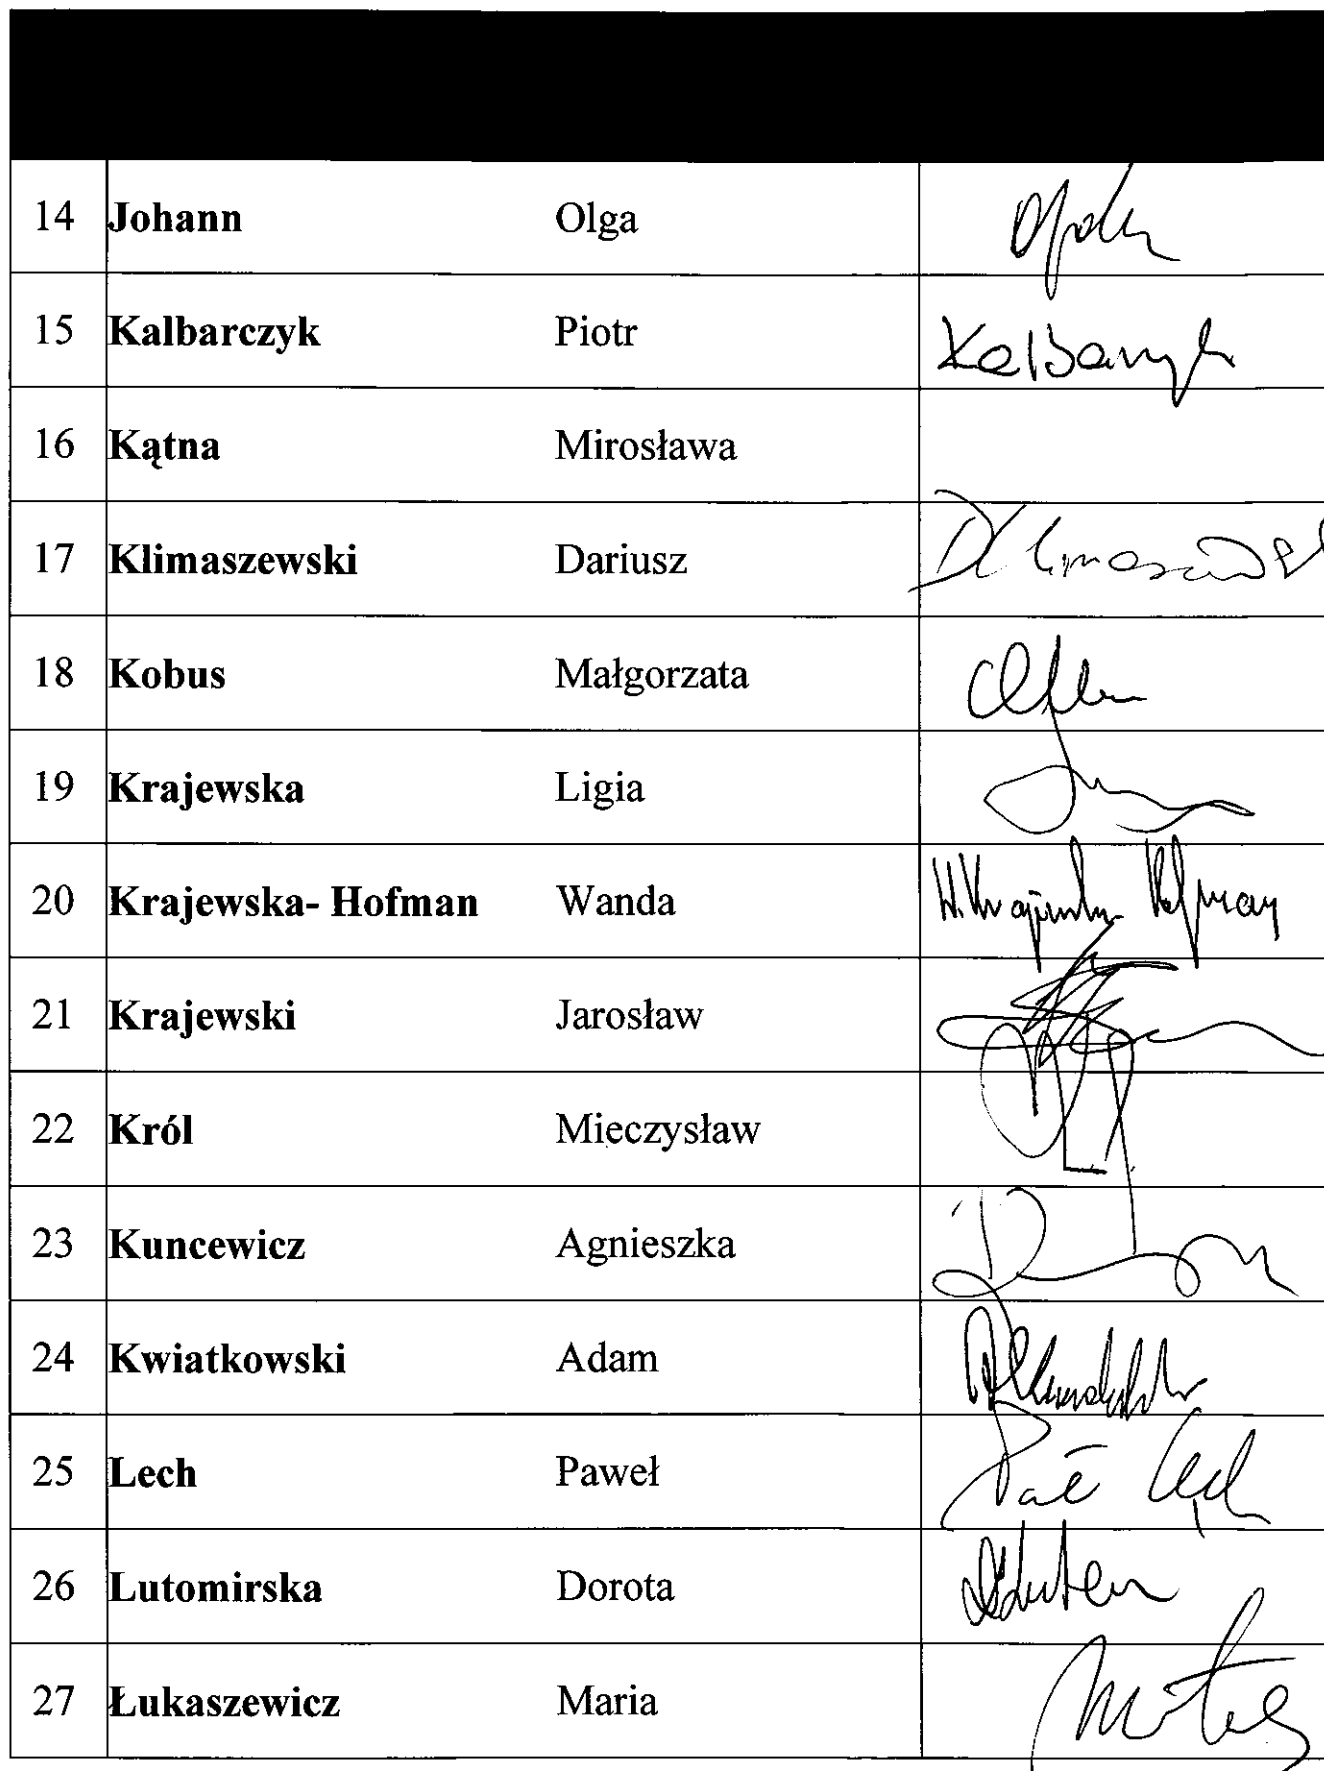 14 Johann Olga
15 Kalbarczyk Piotr Kalbarczyk
16 Kątna Mirosława
17 Klimaszewski Dariusz
18 Kobus Małgorzata
19 Krajewska Ligia
20 Krajewska- Hofman Wanda
21 Krajewski Jarosław
22 Król Mieczysław
23 Kuncewicz Agnieszka
24 Kwiatkowski Adam
25 Lech Paweł
26 Lutomirska Dorota
27 Łukaszewicz Maria